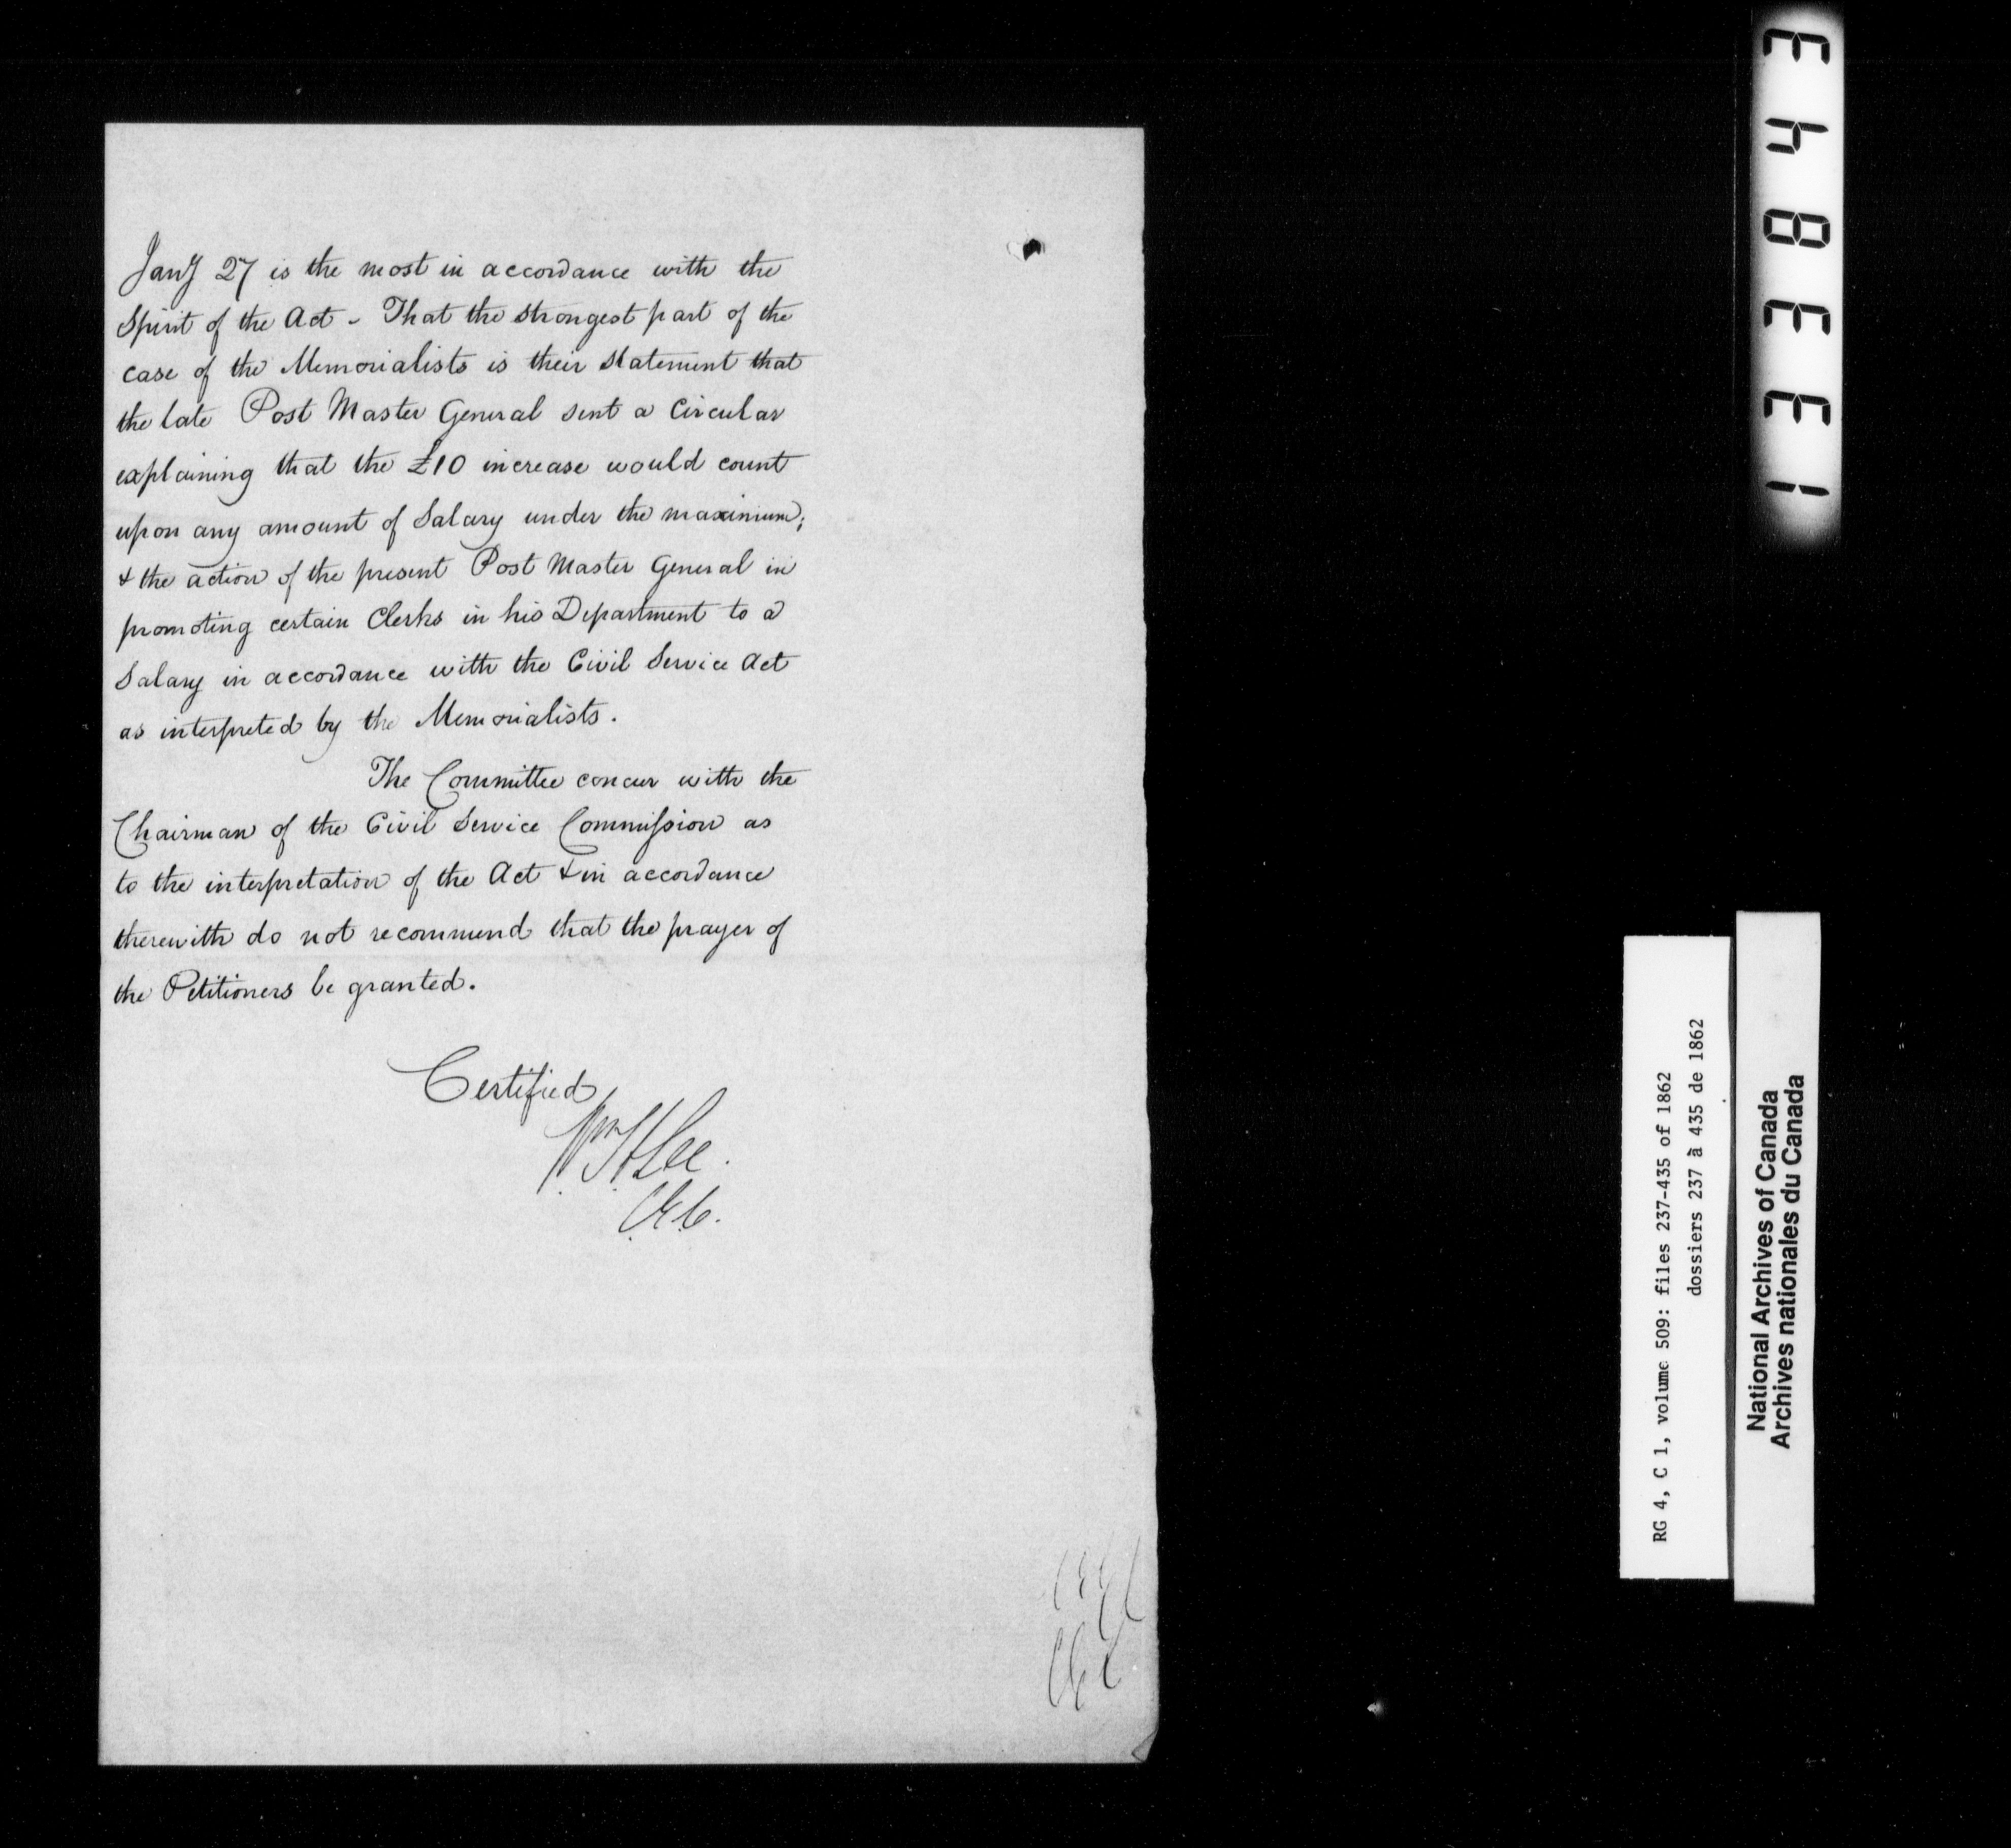 Jany 27 is the most in accordance with the
Spirit of the Act - That the strongest part of the
case of the Memorialists is their statement that
the late Post Master General sent a Circular
explaining that the £10 increase would count
upon any amount of Salary under the maximum;
& the action of the present Post Master General in
promoting certain Clerks in his Department to a
Salary in accordance with the Civil Service Act
as interpreted by the Memorialists.
The Committee concur with the
Chairman of the Civil Service Commission as
to the interpretation of the Act & in accordance
therewith do not recommend that the prayer of
the Petitioners be granted.
Certified
Wm H Lee.
C.E.C.
RG 4, C 1, volume 509: files 237-435 of 1862
dossiers 237 à 435 de 1862
National Archives of Canada
Archives nationales du Canada
133843